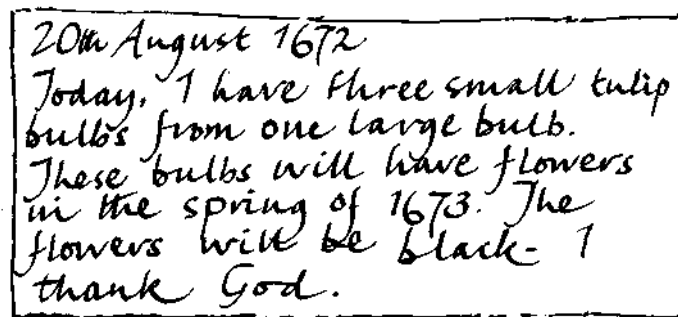 20th August 1672
Today, I have three small tulip
bulbs from one large bulb.
These bulbs will have flowers
in the spring of 1673. The
flowers will be black - I
thank God.